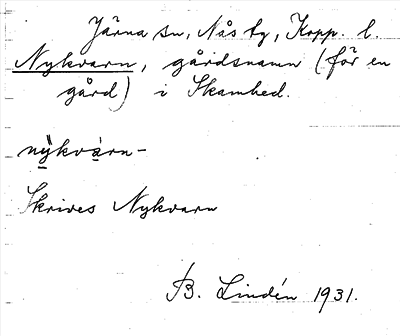 Järna sn, Nås fg, Kopp. l.
Nykvarn, gårdsnamn (för en
gård) i Skamhed.
nỳkvàrn-
Skrives Nykvarn
B. Lindén 1931.